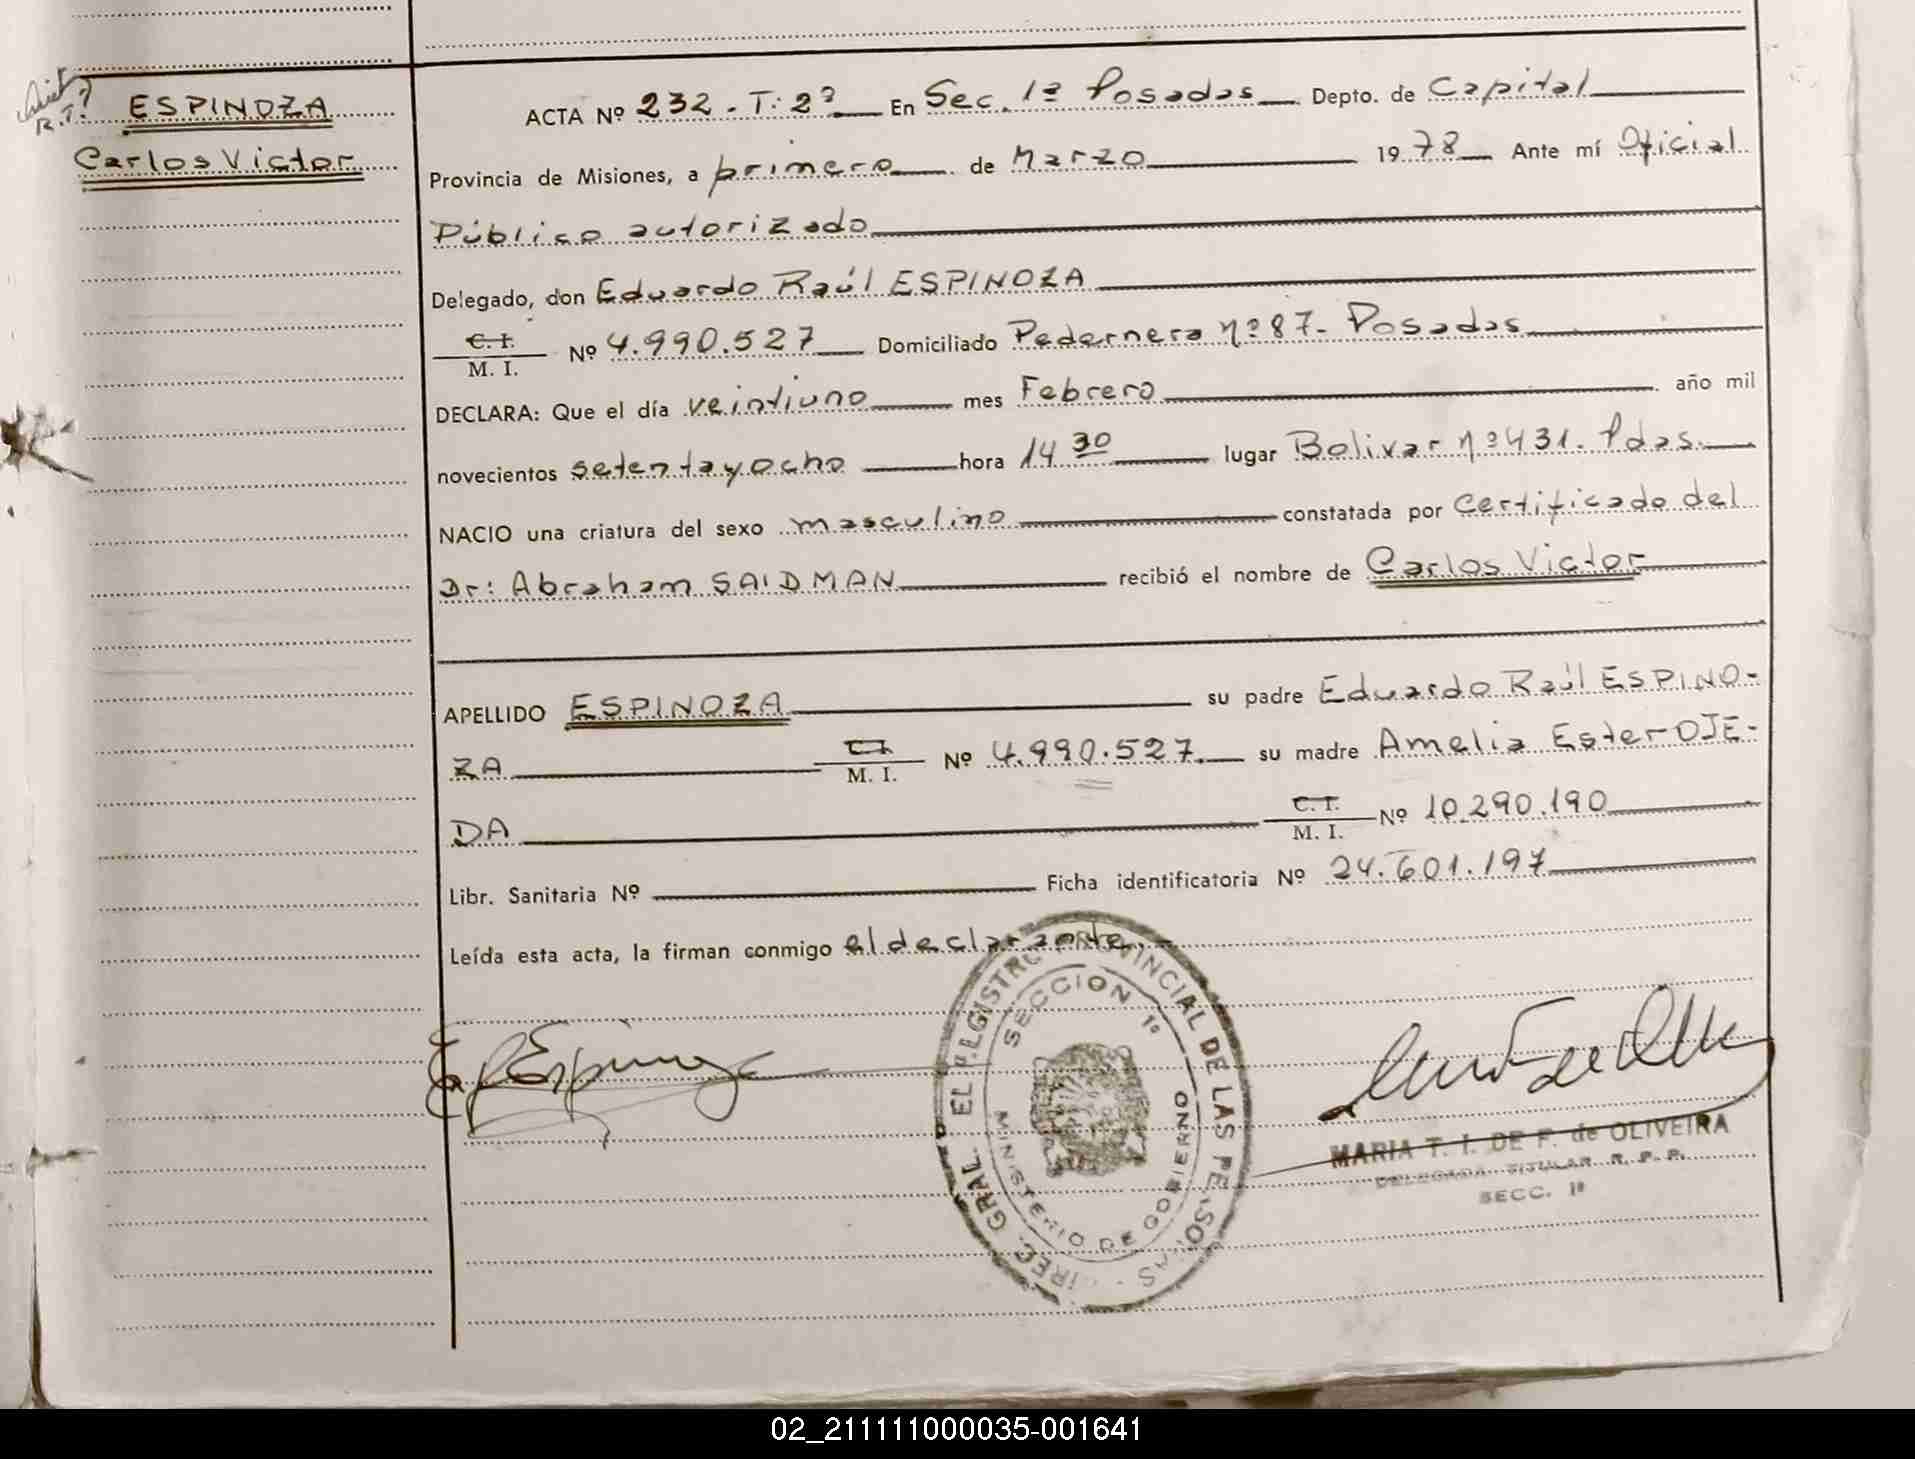 R.T.?
ESPINOZA
Carlos Victor
ACTA Nº 232. T: 2º En Sec. 1ª Posadas Depto. de Capital
Provincia de Misiones, a primero de Marzo 1978 Ante mí Oficial
Público autorizado
Delegado, don Eduardo Raúl ESPINOZA
C. I.
M. I. Nº 4.990.527 Domiciliado Pedernera nº 87- Posadas
DECLARA: Que el día veintiuno mes Febrero año mil
novecientos setentayocho hora 14 30 lugar Bolivar nº 431. Pdas.
NACIO una criatura del sexo masculino constatada por Certificado del
Dr: Abraham SAIDMAN recibió el nombre de Carlos Victor
APELLIDO ESPINOZA su padre Eduardo Raúl ESPINO-
ZA C.I. M. I. Nº 4.990.527. su madre Amelia Ester OJE-
DA C. I. M. I. Nº 10.290.190
Libr. Sanitaria Nº Ficha identificatoria Nº 24.601.197
Leída esta acta, la firman conmigo el declarante.
SECCION 1ª
MINISTERIO DE GOBIERNO
MARIA T. I. DE F. de OLIVEIRA
DELEGADA TITULAR R. P. P.
SECC. 1ª
02_211111000035-001641